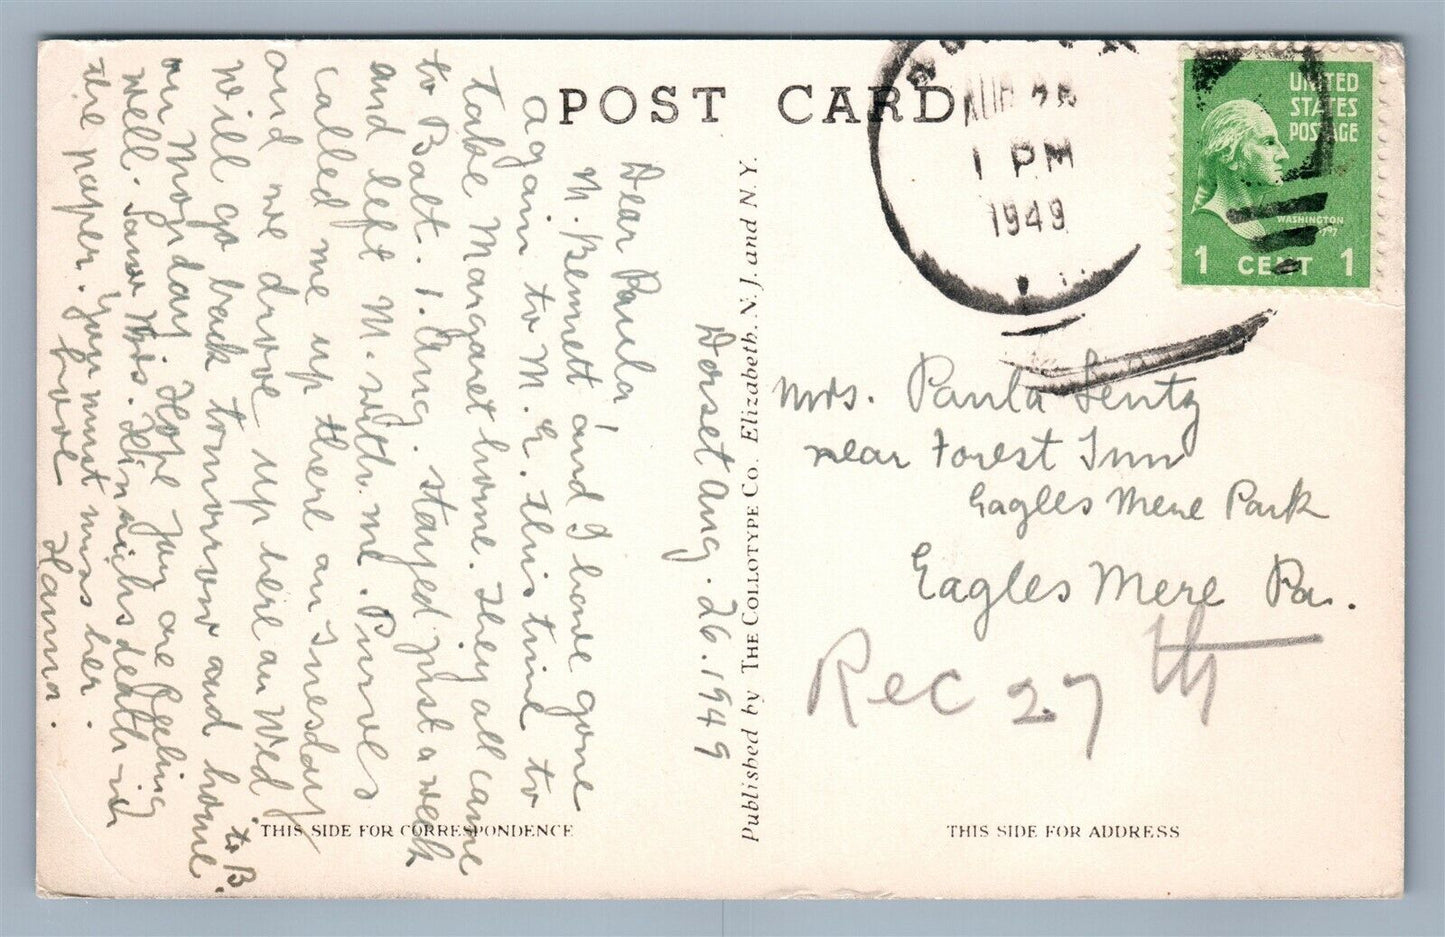 POST CARD
AUG 26
1 PM
1949
UNITED
STATES
POSTAGE
WASHINGTON
1 CENT 1
Dorset Aug. 26. 1949
Dear Paula!
M. Bennett and I have gone
again to M. E. this time to
take Margaret home. They all came
to Balt. 1. Aug. stayed just a week
and left M. with me. Purves
called me up there on Tuesday
and we drove up here on Wed
will go back tomorrow and home to B.
on Monday. Hope you are feeling
well. Saw Mrs. Hinrichs death in
the paper. You must miss her.
Love Hanna.
Published by THE COLLOTYPE CO. Elizabeth. N. J. and N. Y.
Mrs. Paula Lentz
near Forest Inn
Eagles Mere Park
Eagles Mere Pa.
Rec 27th
THIS SIDE FOR CORRESPONDENCE
THIS SIDE FOR ADDRESS